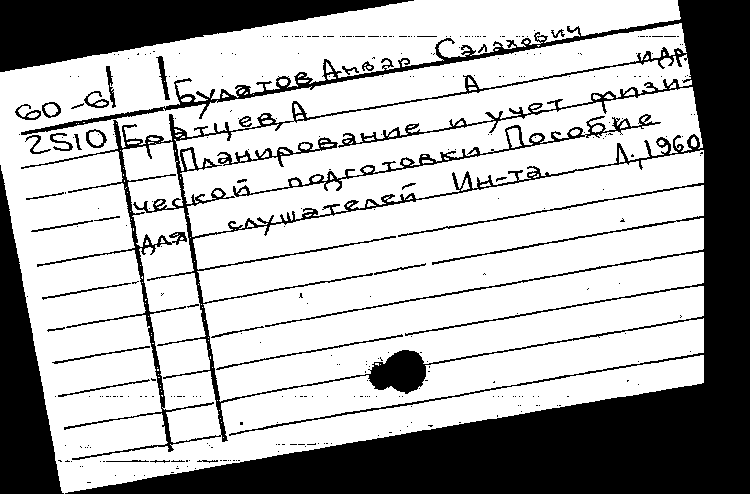 60-6 Булатов, Анвар Салахович
2510 Братцев, А А и др
Планирование и учет физи-
ческой подготовки. Пособие
для слушателей Ин-та. Л., 1960